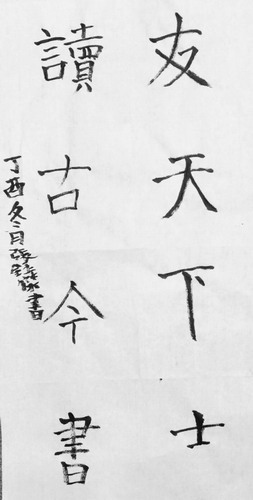 友天下士
讀古今書
丁酉冬月張
書